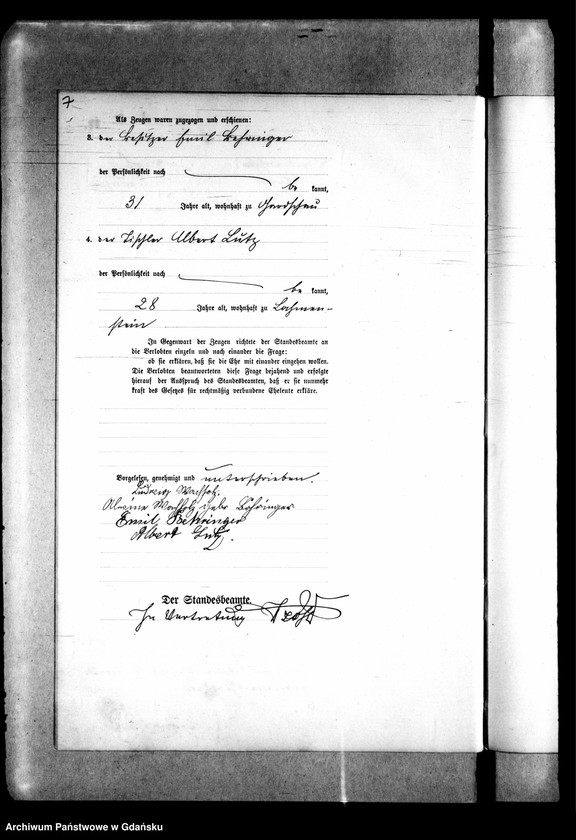 7
Als Zeugen waren zugezogen und erschienen:
3. der Besitzer Emil Behringer
der Persönlichkeit nach
be kannt,
31 Jahre alt, wohnhaft zu
4. der Tischler Albert Lutz
der Persönlichkeit nach
be kannt,
28 Jahre alt, wohnhaft zu Lahmen-
stein
In Gegenwart der Zeugen richtete der Standesbeamte an
die Verlobten einzeln und nach einander die Frage:
ob sie erklären, daß sie die Ehe mit einander eingehen wollen.
Die Verlobten beantworteten diese Frage bejahend und erfolgte
hierauf der Ausspruch des Standesbeamten, daß er sie nunmehr
kraft des Gesetzes für rechtmäßig verbundene Eheleute erkläre.
Vorgelesen, genehmigt und unterschrieben.
Ludwig Wachholz.
Wachholz geb. Böhringer
Emil Behringer
Albert Lutz.
Der Standesbeamte.
In Vertretung
Archiwum Państwowe w Gdańsku